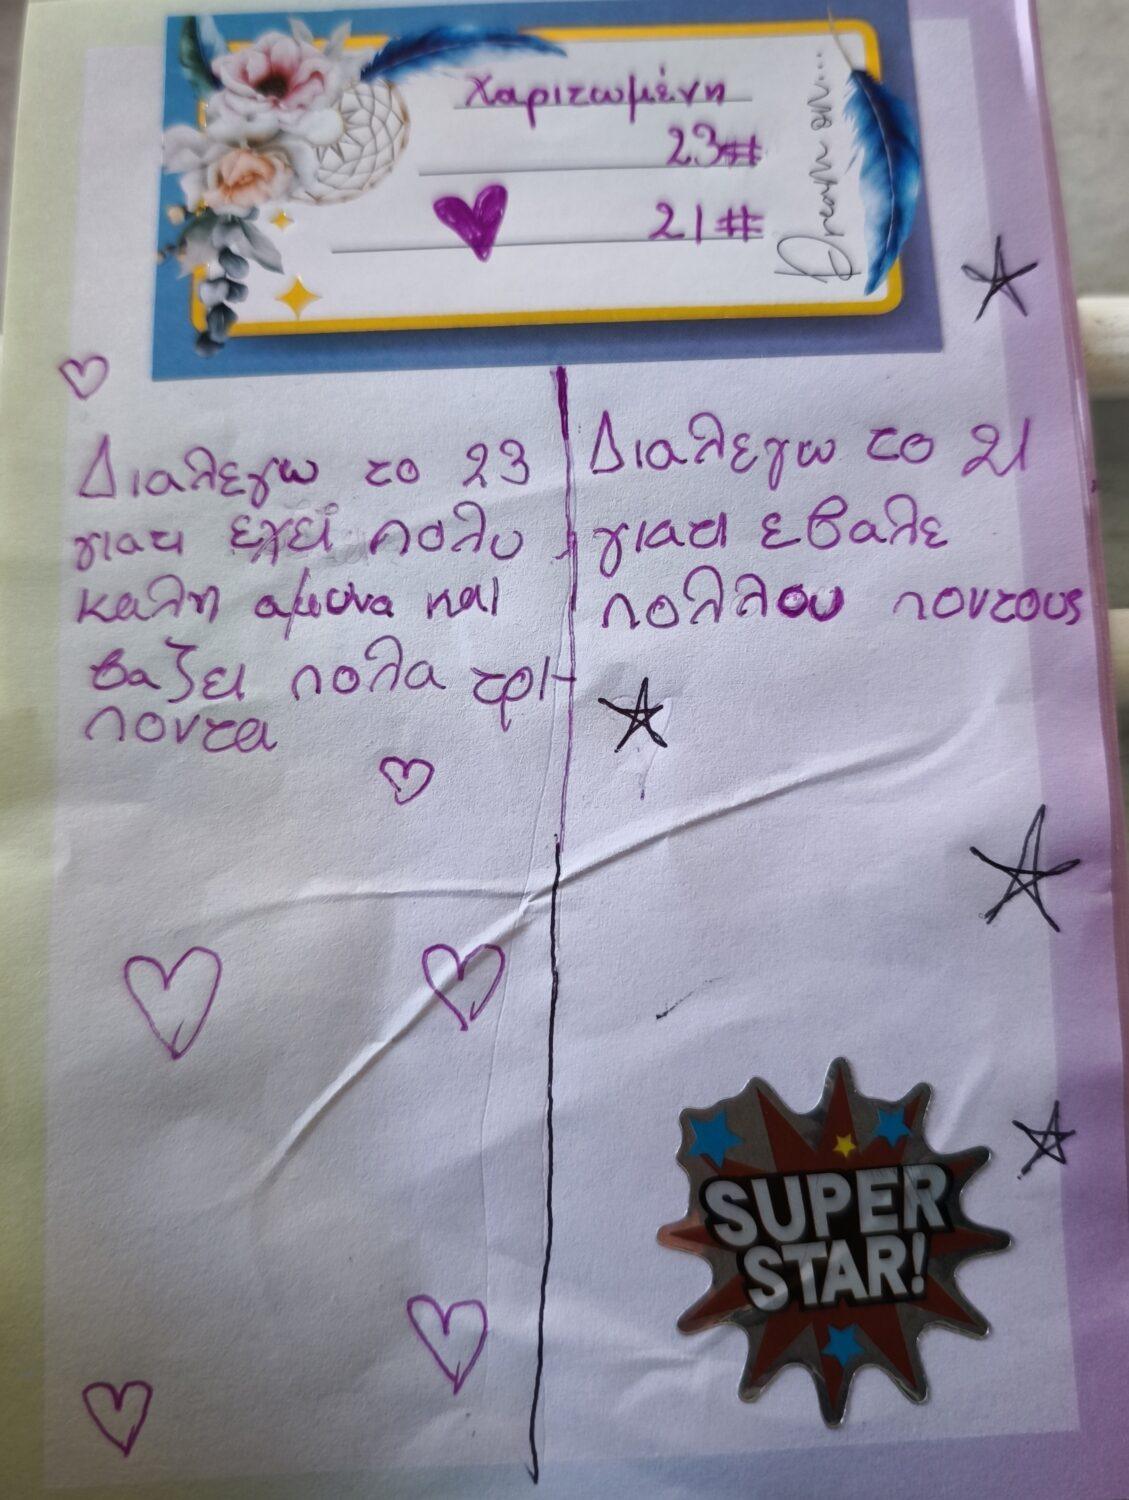 Χαριτωμένη
23#
21#
Dream on...
Διαλεγω το 23
γιατι εχει πολυ
καλη αμυνα και
βαζει πολα τρι-
ποντα
Διαλεγω το 21
γιατι εβαλε
πολλου ποντους
SUPER
STAR!